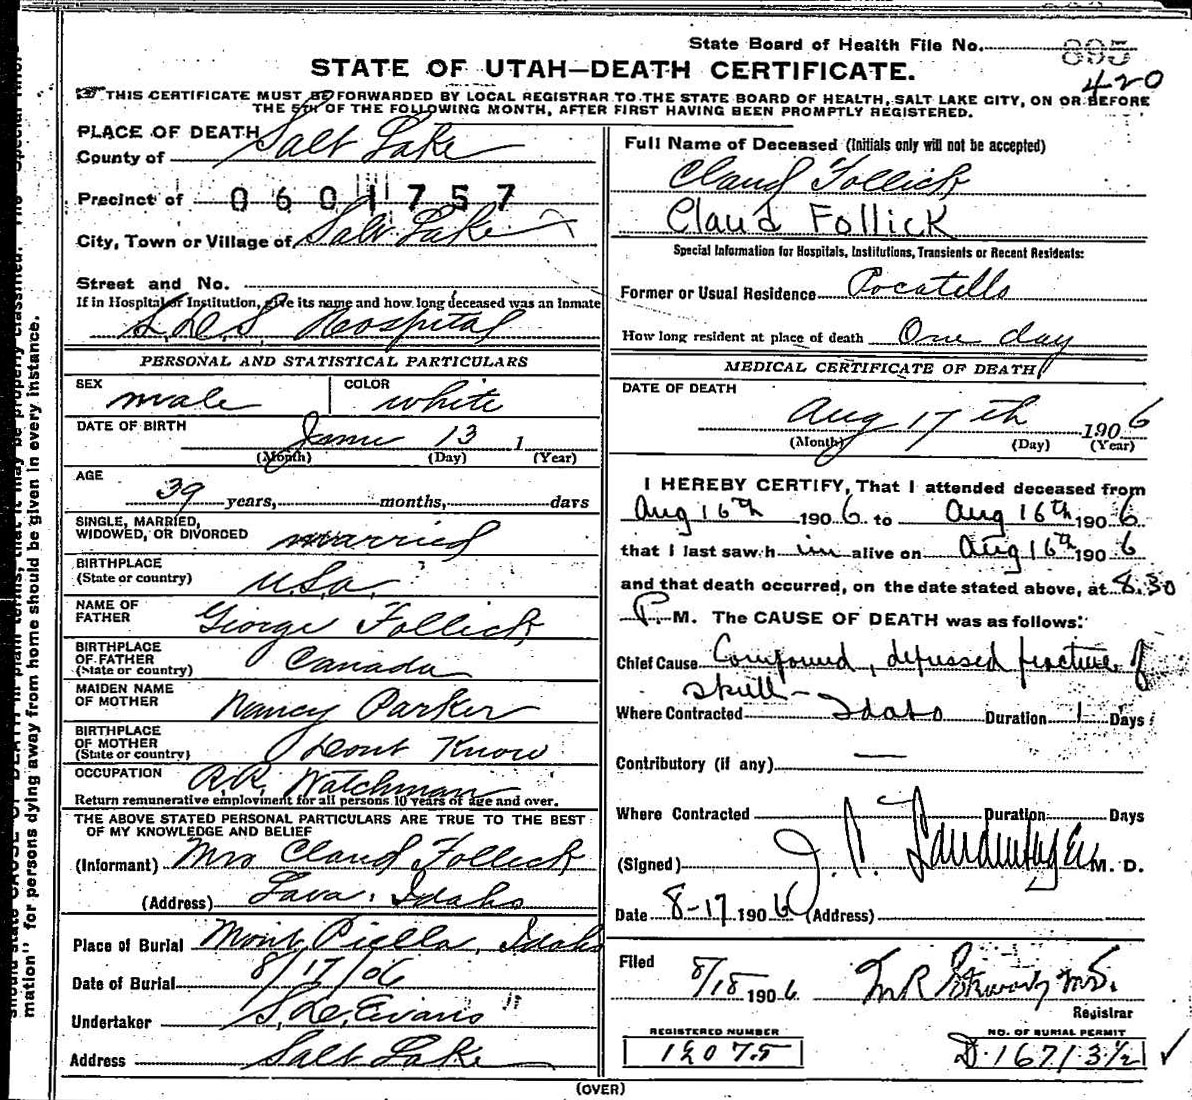 State Board of Health File No. 895
420
STATE OF UTAH—DEATH CERTIFICATE.
THIS CERTIFICATE MUST BE FORWARDED BY LOCAL REGISTRAR TO THE STATE BOARD OF HEALTH, SALT LAKE CITY, ON OR BEFORE
THE 5TH OF THE FOLLOWING MONTH, AFTER FIRST HAVING BEEN PROMPTLY REGISTERED.
PLACE OF DEATH
County of Salt Lake
Precinct of 0601757
City, Town or Village of Salt Lake
Street and No.
If in Hospital or Institution, give its name and how long deceased was an Inmate
L.D.S. Hospital
PERSONAL AND STATISTICAL PARTICULARS
SEX male COLOR white
DATE OF BIRTH June 13 1
(Month) (Day) (Year)
AGE
39 years, months, days
SINGLE, MARRIED,
WIDOWED, OR DIVORCED married
BIRTHPLACE
(State or country) U.S.A.
NAME OF
FATHER George Follick
BIRTHPLACE
OF FATHER
(State or country) Canada
MAIDEN NAME
OF MOTHER Nancy Parker
BIRTHPLACE
OF MOTHER
(State or country) Dont Know
OCCUPATION R.R. Watchman
Return remunerative employment for all persons 10 years of age and over.
THE ABOVE STATED PERSONAL PARTICULARS ARE TRUE TO THE BEST
OF MY KNOWLEDGE AND BELIEF
(Informant) Mrs Claud Follick
(Address) Lava, Idaho
Place of Burial Idaho
Date of Burial 8/17/06
Undertaker S.D. Evans
Address Salt Lake
Full Name of Deceased (Initials only will not be accepted)
Claud Follick
Claud Follick
Special Information for Hospitals, Institutions, Transients or Recent Residents:
Former or Usual Residence Pocatello
How long resident at place of death One day
MEDICAL CERTIFICATE OF DEATH
DATE OF DEATH
Aug 17th 1906
(Month) (Day) (Year)
I HEREBY CERTIFY, That I attended deceased from
Aug 16th 1906 to Aug 16th 1906
that I last saw h im alive on Aug 16th 1906
and that death occurred, on the date stated above, at 8.30
P. M. The CAUSE OF DEATH was as follows:
Chief Cause Compound, depressed fracture of
skull
Where Contracted Idaho Duration 1 Days
Contributory (if any) —
Where Contracted Duration Days
(Signed) J. P. M. D.
Date 8-17 1906 (Address)
Filed 8/18 1906
Registrar
REGISTERED NUMBER
12075
NO. OF BURIAL PERMIT
D.16713½ ✓
(OVER)
mation" for persons dying away from home should be given in every instance.